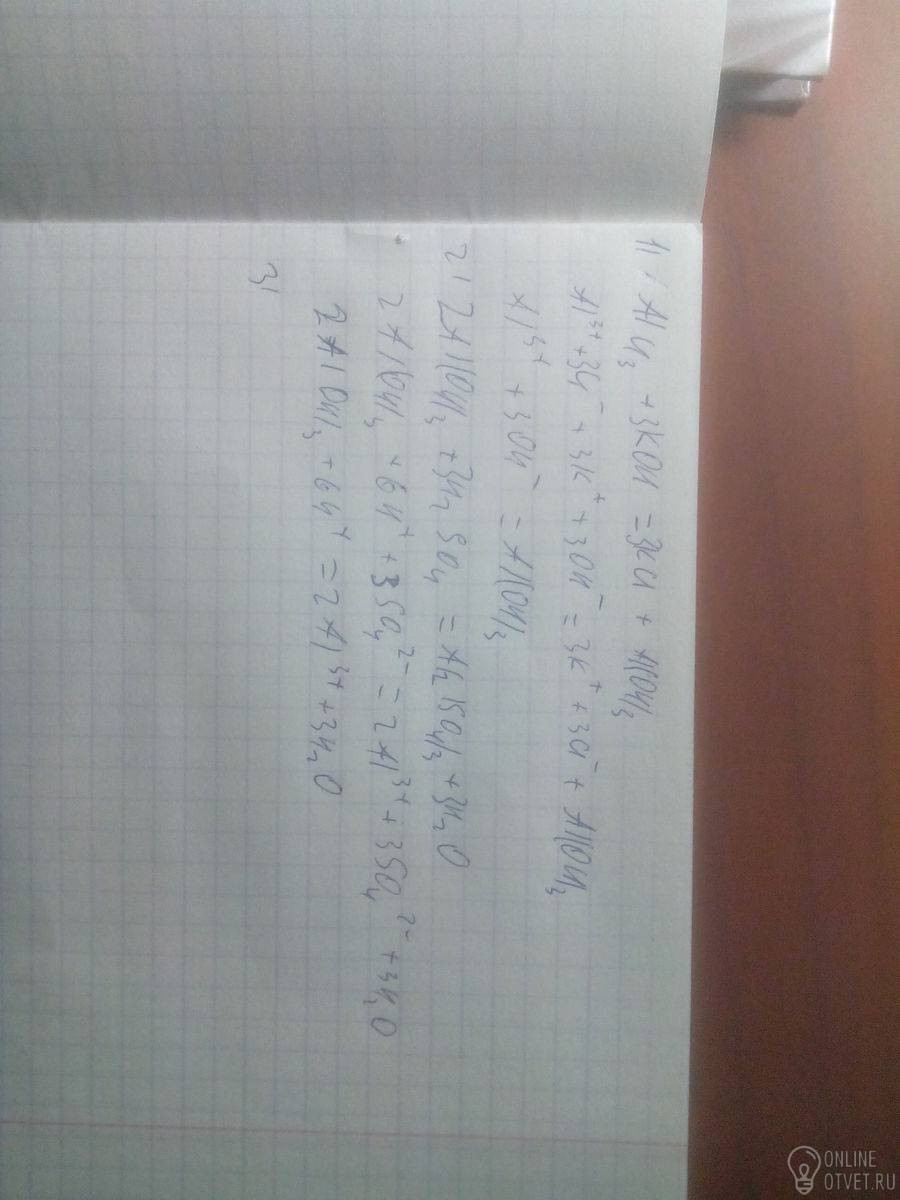 1) AlCl₃ + 3KOH = 3KCl + Al(OH)₃
Al³⁺ + 3Cl⁻ + 3K⁺ + 3OH⁻ = 3K⁺ + 3Cl⁻ + Al(OH)₃
Al³⁺ + 3OH⁻ = Al(OH)₃
2) 2Al(OH)₃ + 3H₂SO₄ = Al₂(SO₄)₃ + 3H₂O
2Al(OH)₃ + 6H⁺ + 3SO₄²⁻ = 2Al³⁺ + 3SO₄²⁻ + 3H₂O
2Al(OH)₃ + 6H⁺ = 2Al³⁺ + 3H₂O
3)
ONLINE
OTVET.RU